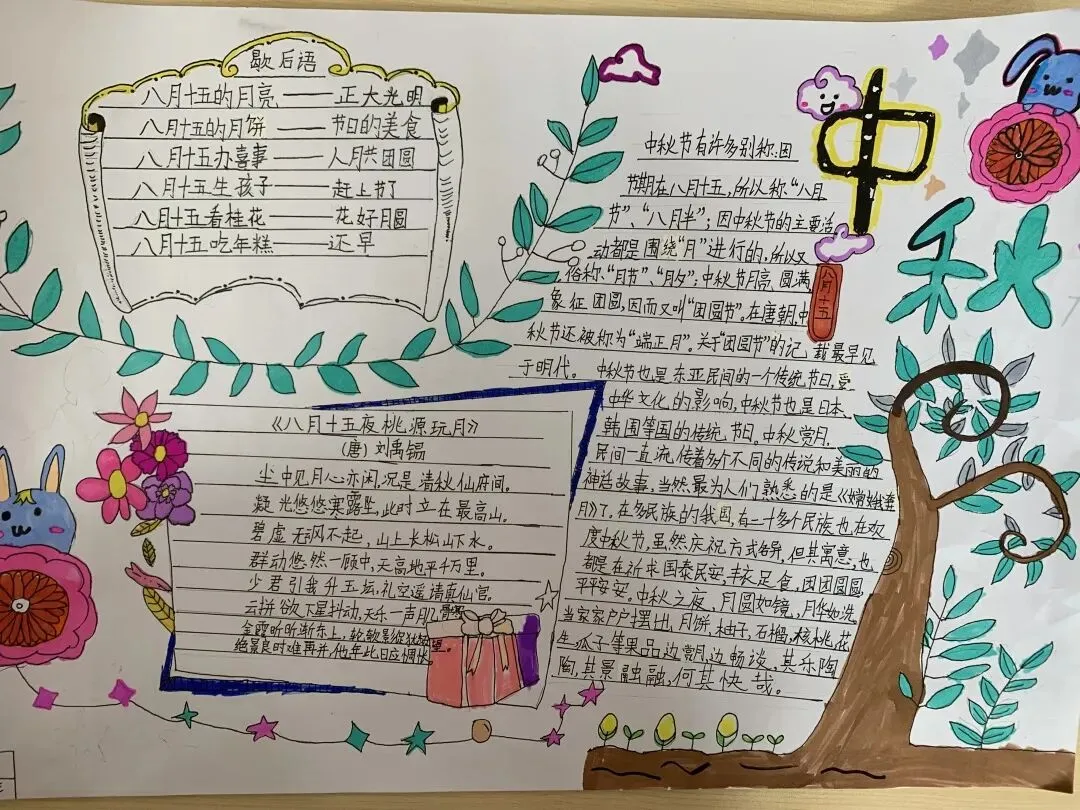 歇后语
八月十五的月亮——正大光明
八月十五的月饼——节日的美食
八月十五办喜事——人月共团圆
八月十五生孩子——赶上节了
八月十五看桂花——花好月圆
八月十五吃年糕——还早
《八月十五夜桃源玩月》
(唐)刘禹锡
尘中见月心亦闲,况是清秋仙府间。
凝光悠悠寒露坠,此时立在最高山。
碧虚无风不起,山上长松山下水。
群动悠然一顾中,天高地平千万里。
少君引我升玉坛,礼空遥请真仙官。
云拼欲下星斗动,天乐一声肌
金霞昕昕渐东上,
绝景良时难再并,他年此日应惆怅
中秋
八月十五
中秋节有许多别称:因
节期在八月十五,所以称“八月
节”、“八月半”;因中秋节的主要活
动都是围绕“月”进行的,所以又
俗称“月节”、“月夕”;中秋节月亮圆满
象征团圆,因而又叫“团圆节”。在唐朝,中
秋节还被称为“端正月”。关于“团圆节”的记载最早见
于明代。中秋节也是东亚民间的一个传统节日,受
中华文化的影响,中秋节也是日本
韩国等国的传统节日。中秋赏月,
民间一直流传着多个不同的传说和美丽的
神话故事,当然最为人们熟悉的是《嫦娥奔
月》了。在多民族的我国,有二十多个民族也在欢
度中秋节,虽然庆祝方式各异,但其寓意,也
都是在祈求国泰民安,丰衣足食,团团圆圆,
平平安安。中秋之夜,月圆如镜,月华如洗
当家家户户摆出,月饼,柚子,石榴,核桃,花
生,瓜子等果品,边赏月,边畅谈,其乐陶
陶,其景融融,何其快哉。